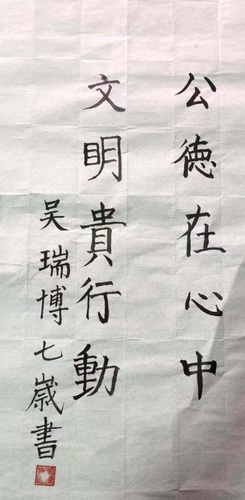 公德在心中
文明貴行動
吴瑞博七歲書